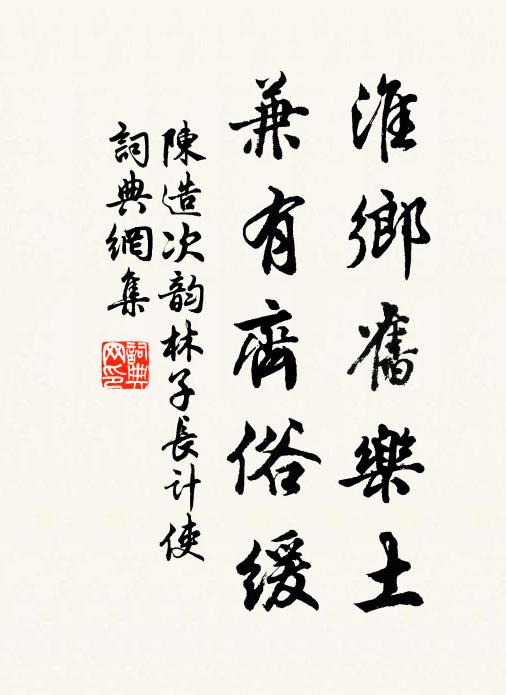 淮鄉舊樂土
兼有齊俗緩
陳造次韵林子長計使
詞典網集
詞典網印